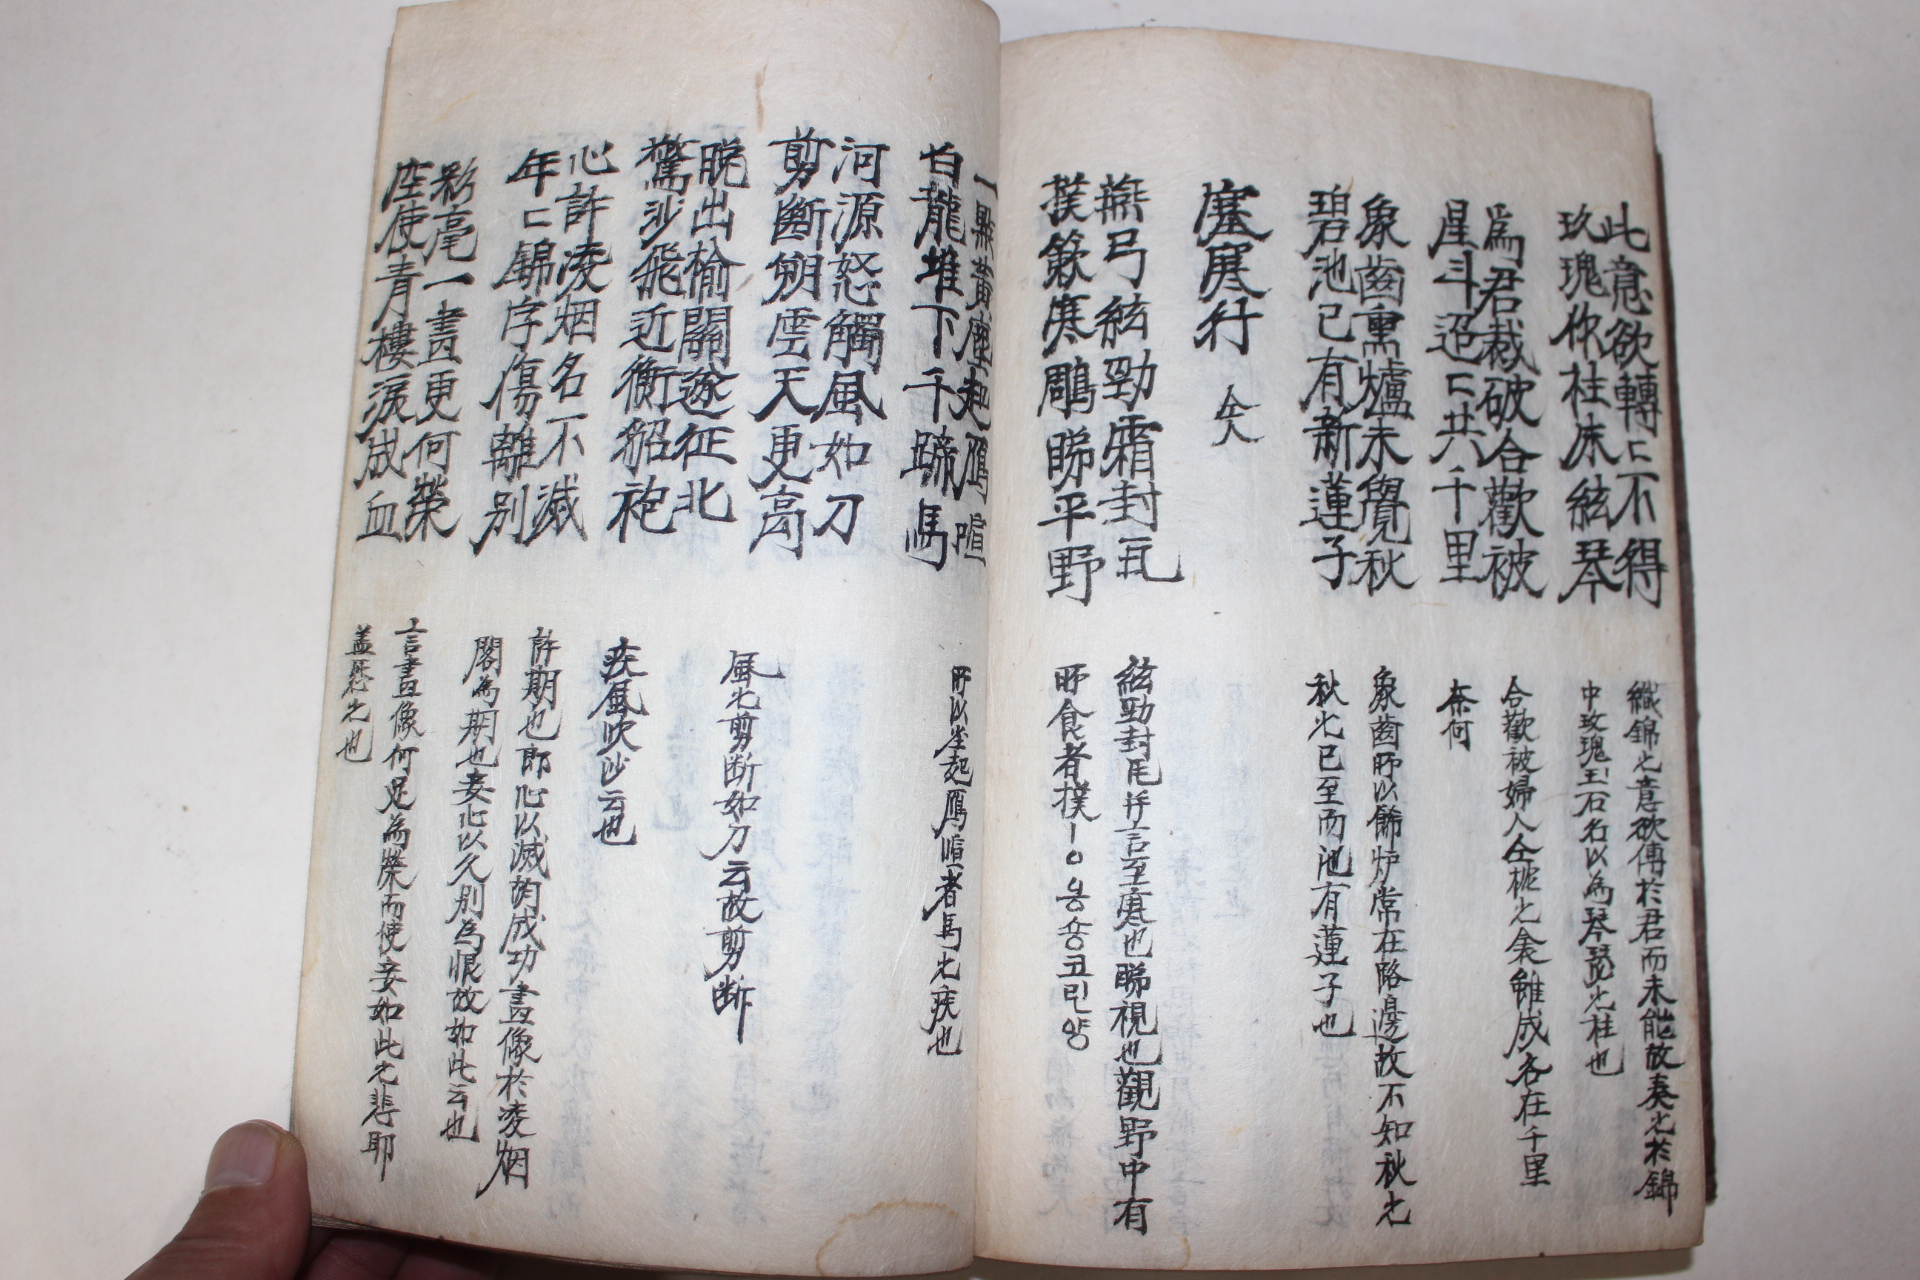 此意欲轉〻不得
玖瑰作柱朱絃琴
爲君裁破合歡被
星斗迢〻共千里
象齒熏爐未覺秋
碧池已有新蓮子
塞寒行
燕弓絃勁霜封瓦
撲簌寒鵰睇平野
織錦之意欲傳於君而未能故奏之於錦
中玫瑰玉石名以爲琴瑟之柱也
合歡被婦人仝枕之衾雖成各在千里
奈何
象齒所以餙炉常在路邊故不知秋之
秋之已至而池有蓮子也
絃勁封瓦并言至寒也睇視也觀野中有
所食者撲
一點黃塵起鴈喧
白龍堆下千蹄馬
河源怒觸風如刀
剪斷朔雲天更高
晩出榆關逐征北
驚沙飛近衝貂袍
心許凌烟名不滅
年〻錦字傷離別
彩毫一畵更何榮
空使青樓淚成血
所以塵起鴈喧者馬之疾也
風之剪断如刀云故剪断
疾風吹沙云也
許期也郎心以滅胡成功畵像於凌烟
閣為期也妾心以久别為恨故如此云也
言畵像何足為榮而使妾如此之悲耶
盖怨之也